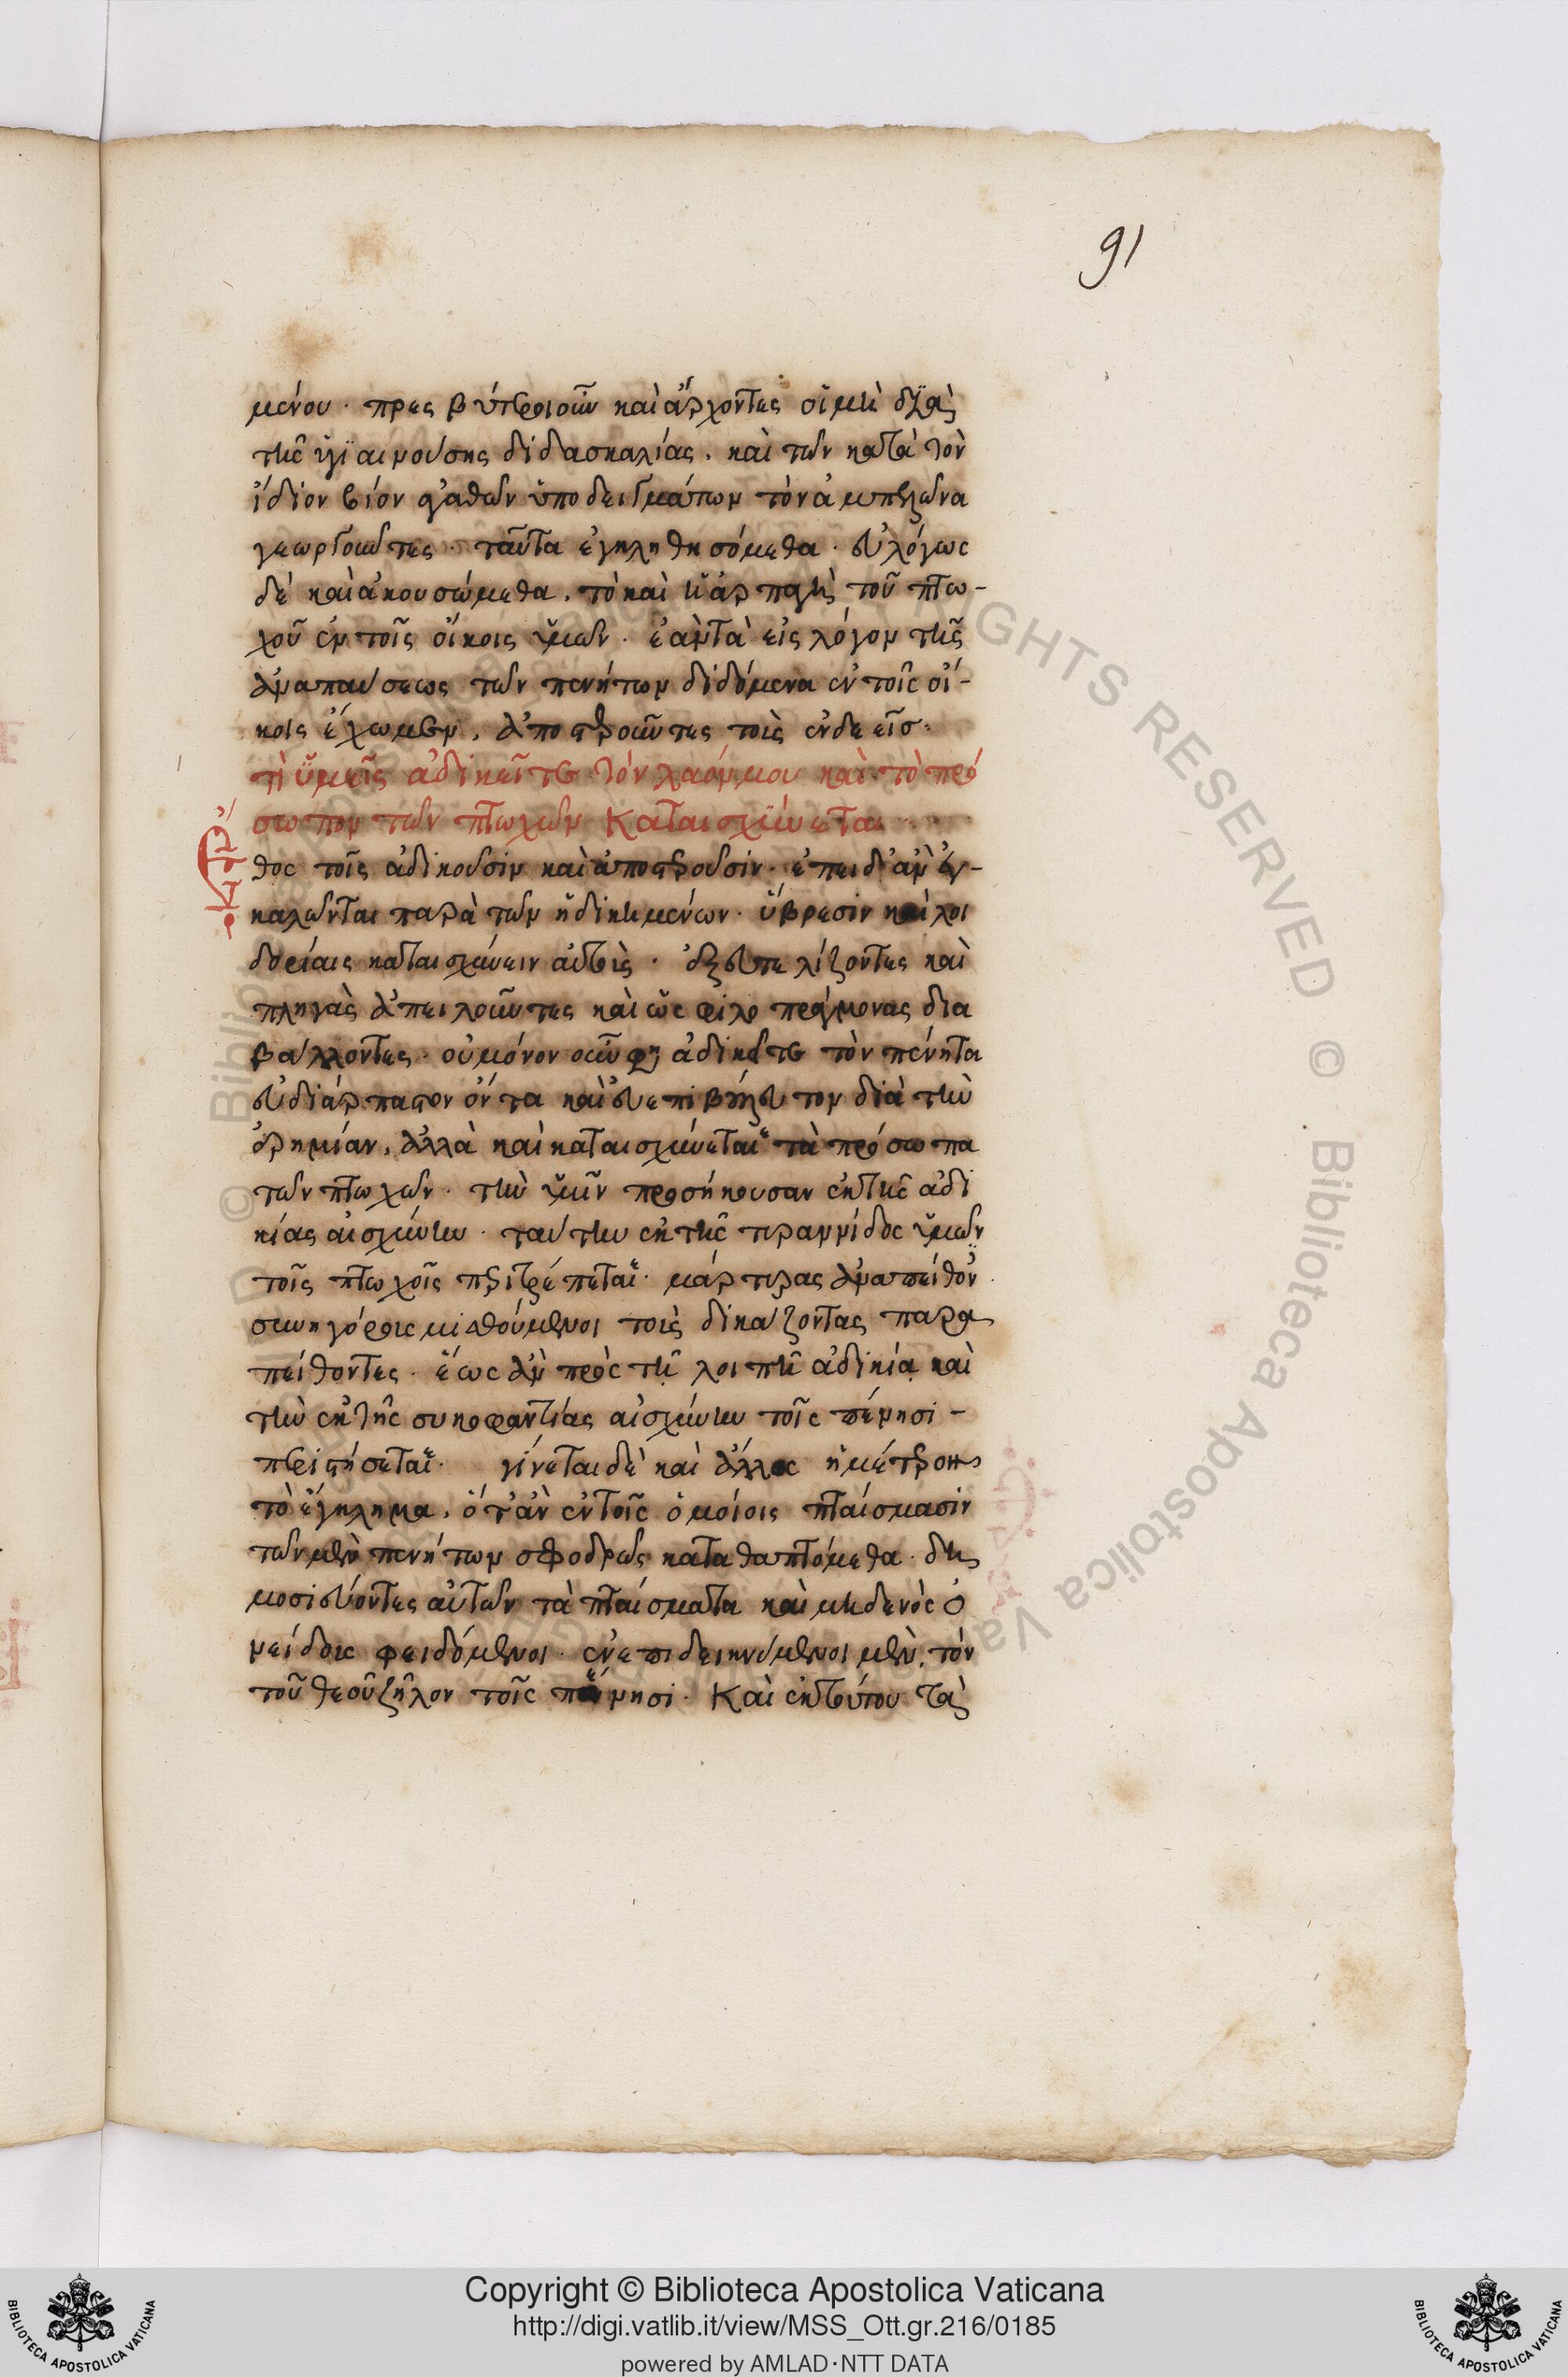 91
μένου · πρεσβύτεροι οὖν καὶ ἄρχοντες οἱ μὴ διὰ
τῆς ὑγιαινούσης διδασκαλίας, καὶ τῶν κατὰ τὸν
ἴδιον βίον ἀγαθῶν ὑποδειγμάτων τὸν ἀμπελῶνα
γεωργοῦντες · ταῦτα ἐγκληθησόμεθα · εὐλόγως
δὲ καὶ ἀκουσώμεθα, τὸ καὶ ἡ ἁρπαγὴ τοῦ πτω-
χοῦ ἐν τοῖς οἴκοις ὑμῶν · ἐὰν τὰ εἰς λόγον τῆς
ἀναπαύσεως τῶν πενήτων διδόμενα ἐν τοῖς οἴ-
κοις ἔχωμεν, ἀποστεροῦντες τοὺς ἐνδεεῖς ·
τί ὑμεῖς ἀδικεῖτε τὸν λαόν μου καὶ τὸ πρό
σωπον των πτωχῶν καταισχύνετε
θος τοῖς ἀδικοῦσιν καὶ ἀποστεροῦσιν · ἐπειδ' ἂν ἐγ-
καλῶνται παρὰ τῶν ἠδικημένων · ὕβρεσιν καὶ λοι
δορίαις καταισχύνειν αὐτοὺς · ἐξευτελίζοντες καὶ
πληγὰς ἀπειλοῦντες καὶ ὡς φιλοπράγμονας δια
βάλλοντες · οὐ μόνον οὖν φησι ἀδικεῖτε τὸν πένητα
εὐδιάρπαστον ὄντα καὶ εὐεπιβούλευτον διὰ τὴν
ἐρημίαν, ἀλλὰ καὶ καταισχύνεται τὰ πρόσωπα
τῶν πτωχῶν · τὴν ὑμῖν προσήκουσαν ἐκ τῆς ἀδι
κίας αἰσχύνην · ταύτην ἐκ τῆς τυραννίδος ὑμῶν
τοῖς πτωχοῖς περιτρέπεται · μάρτυρας ἀναπείθον
συνηγόροις μισθούμενοι τοὺς δικάζοντας παρα
πείθοντες · ἕως ἂν πρὸς τῇ λοιπῇ ἀδικία καὶ
τὴν ἐκ τῆς συκοφαντίας αἰσχύνην τοῖς πένησι -
περιστήσεται · γίνεται δὲ καὶ ἄλλος ἡμέτερον
τὸ ἔγκλημα, ὅτ' ἂν ἐν τοῖς ὁμοίοις πταίσμασιν
τῶν μὲν πενήτων σφοδρῶς καταθαπτόμεθα · δη
μοσιεύοντες αὐτῶν τὰ πταίσματα καὶ μηδενὸς ὀ
νείδους φειδόμενοι · ἐνεπιδεικνύμενοι μὲν, τὸν
τοῦ θεοῦ ζῆλον τοῖς πένησι · Καὶ ἐκ τούτου τὰς
Copyright © Biblioteca Apostolica Vaticana
http://digi.vatlib.it/view/MSS_Ott.gr.216/0185
powered by AMLAD·NTT DATA